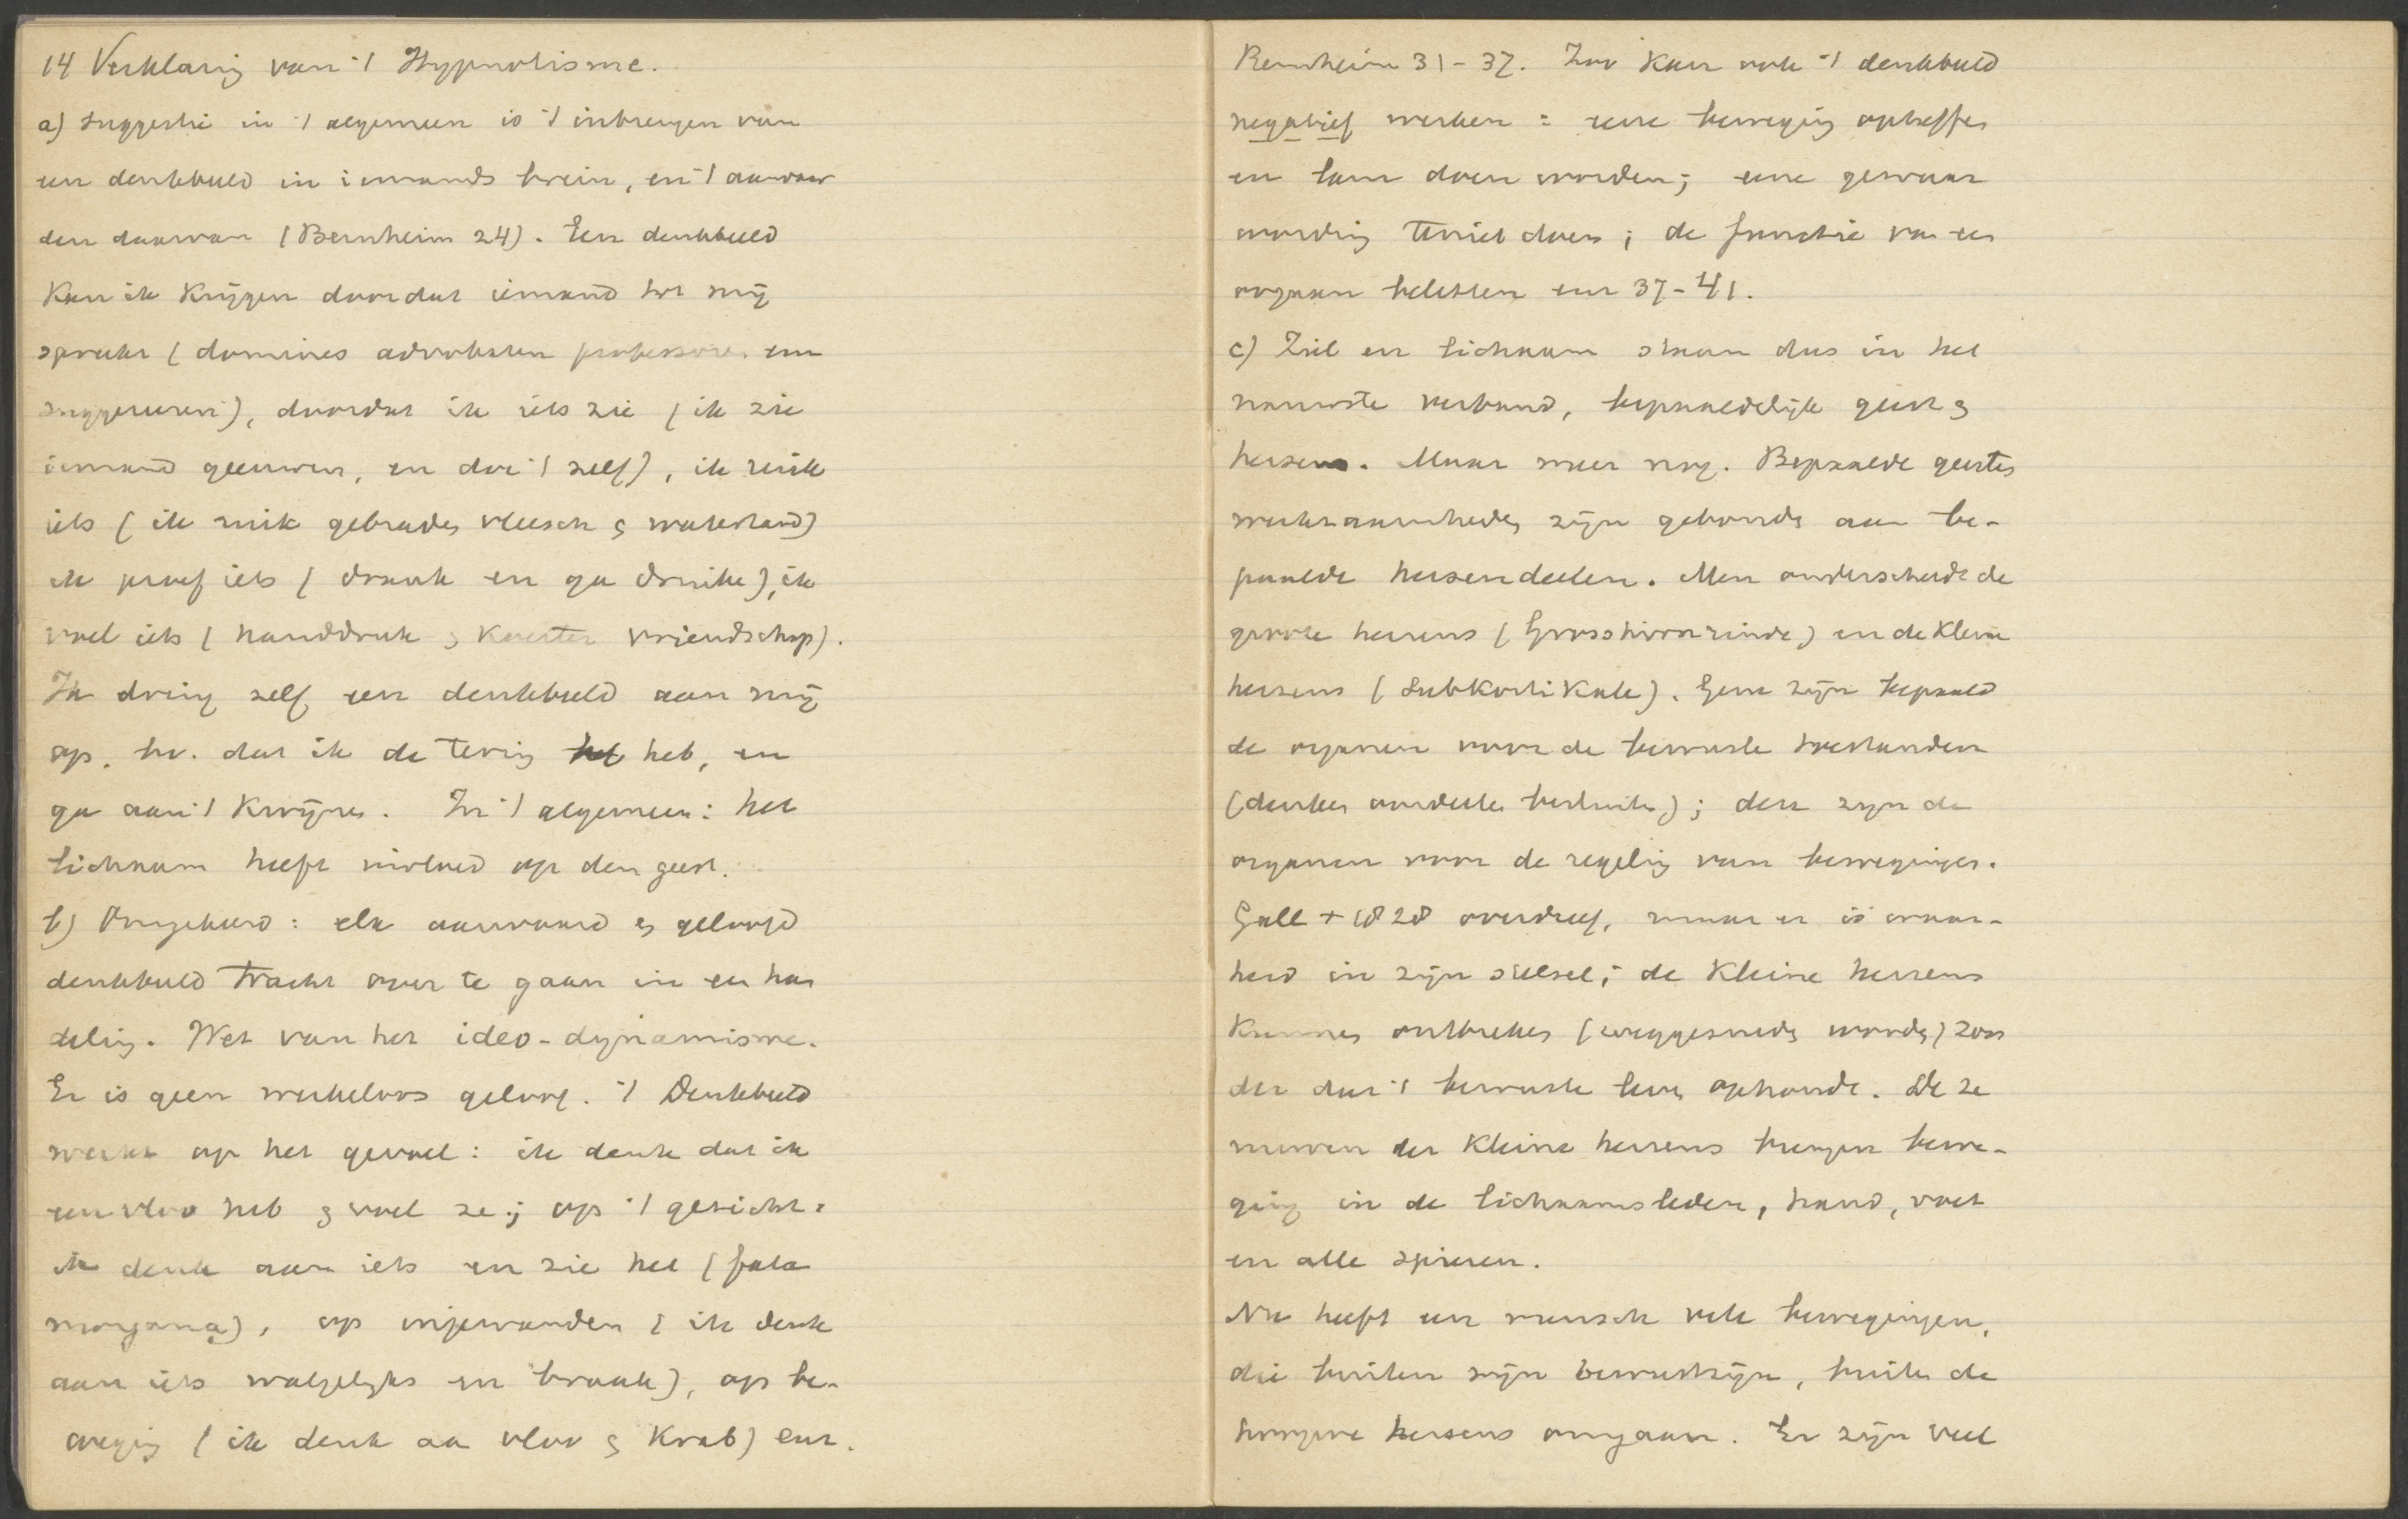 14 Verklaring van 't Hypnotisme.
a) suggestie in 't algemeen is 't inbrengen van
een denkbeeld in iemands brein, en 't aanvaar
den daarvan (Bernheim 24). Een denkbeeld
kan ik krijgen doordat iemand tot mij
spreekt (domines advokaten professoren enz
suggereeren), doordat ik iets zie (ik zie
iemand geeuwen, en doe 't zelf), ik ruik
iets (ik ruik gebraden vleesch & watertand)
ik proef iets (drank en ga drinken), ik
voel iets (handdruk & koester vriendschap).
Ik dring zelf een denkbeeld aan mij
op. bv. dat ik de tering heb, en
ga aan 't kwijnen. In 't algemeen: het
lichaam heeft invloed op den geest.
b) Omgekeerd: elk aanvaard en geloofd
denkbeeld tracht over te gaan in een han
deling. Wet van het ideo-dynamisme.
Er is geen werkeloos geloof. 't Denkbeeld
werkt op het gevoel: ik denk dat ik
een vloo heb & voel ze; op 't gezicht:
ik denk aan iets en zie het (fata
morgana), op ingewanden (ik denk
aan iets walgelijks en braak), op be-
weging (ik denk aan vloo & krab) enz.
Bernheim 31-37. Zoo kan ook 't denkbeeld
negatief werken: eene beweging opheffen
en lam doen worden; eene gewaar
wording teniet doen; de functie van een
orgaan beletten enz 37-41.
c) Ziel en lichaam staan dus in het
nauwste verband, bepaaldelijk geest &
hersens. Maar meer nog. Bepaalde geestes
werkzaamheden zijn gebonden aan be-
paalde hersendeelen. Men onderscheidt de
groote hersens (Grosshirnrinde) en de kleine
hersens (subkortikale). Gene zijn bepaald
de organen voor de bewuste toestanden
(denken oordeelen besluiten); deze zijn de
organen voor de regeling van bewegingen.
Gall + 1828 overdreef, maar er is waar-
heid in zijn stelsel; de kleine hersens
kunnen ontbreken (weggesneden worden) zon
der dat 't bewuste leven ophoudt. Deze
nerven der kleine hersens brengen bewe-
ging in de lichaamsleden, hand, voet
en alle spieren.
Nu heeft een mensch vele bewegingen,
die buiten zijn bewustzijn, buiten de
hoogere hersens omgaan. Er zijn veel